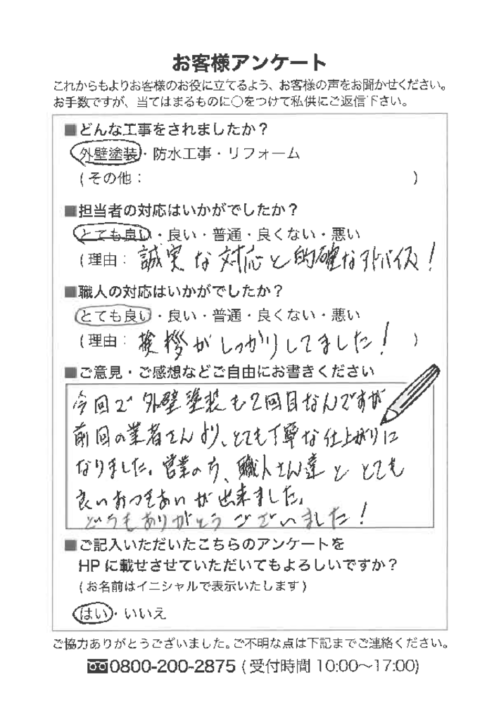 お客様アンケート
これからもよりお客様のお役に立てるよう、お客様の声をお聞かせください。
お手数ですが、当てはまるものに○をつけて私供にご返信下さい。
■どんな工事をされましたか？
外壁塗装・防水工事・リフォーム
(その他： )
■担当者の対応はいかがでしたか？
とても良い・良い・普通・良くない・悪い
(理由： 誠実な対応と的確なアドバイス！
■職人の対応はいかがでしたか？
とても良い・良い・普通・良くない・悪い
(理由： 挨拶がしっかりしてました！ )
■ご意見・ご感想などご自由にお書きください
今回で外壁塗装も2回目なんですが
前回の業者さんより、とても丁寧な仕上がりに
なりました。営業の方、職人さん達ととても
良いおつきあいが出来ました。
どうもありがとうございました！
■ご記入いただいたこちらのアンケートを
HPに載せさせていただいてもよろしいですか？
(お名前はイニシャルで表示いたします)
はい・いいえ
ご協力ありがとうございました。ご不明な点は下記までご連絡ください。
0800-200-2875 (受付時間 10:00〜17:00)